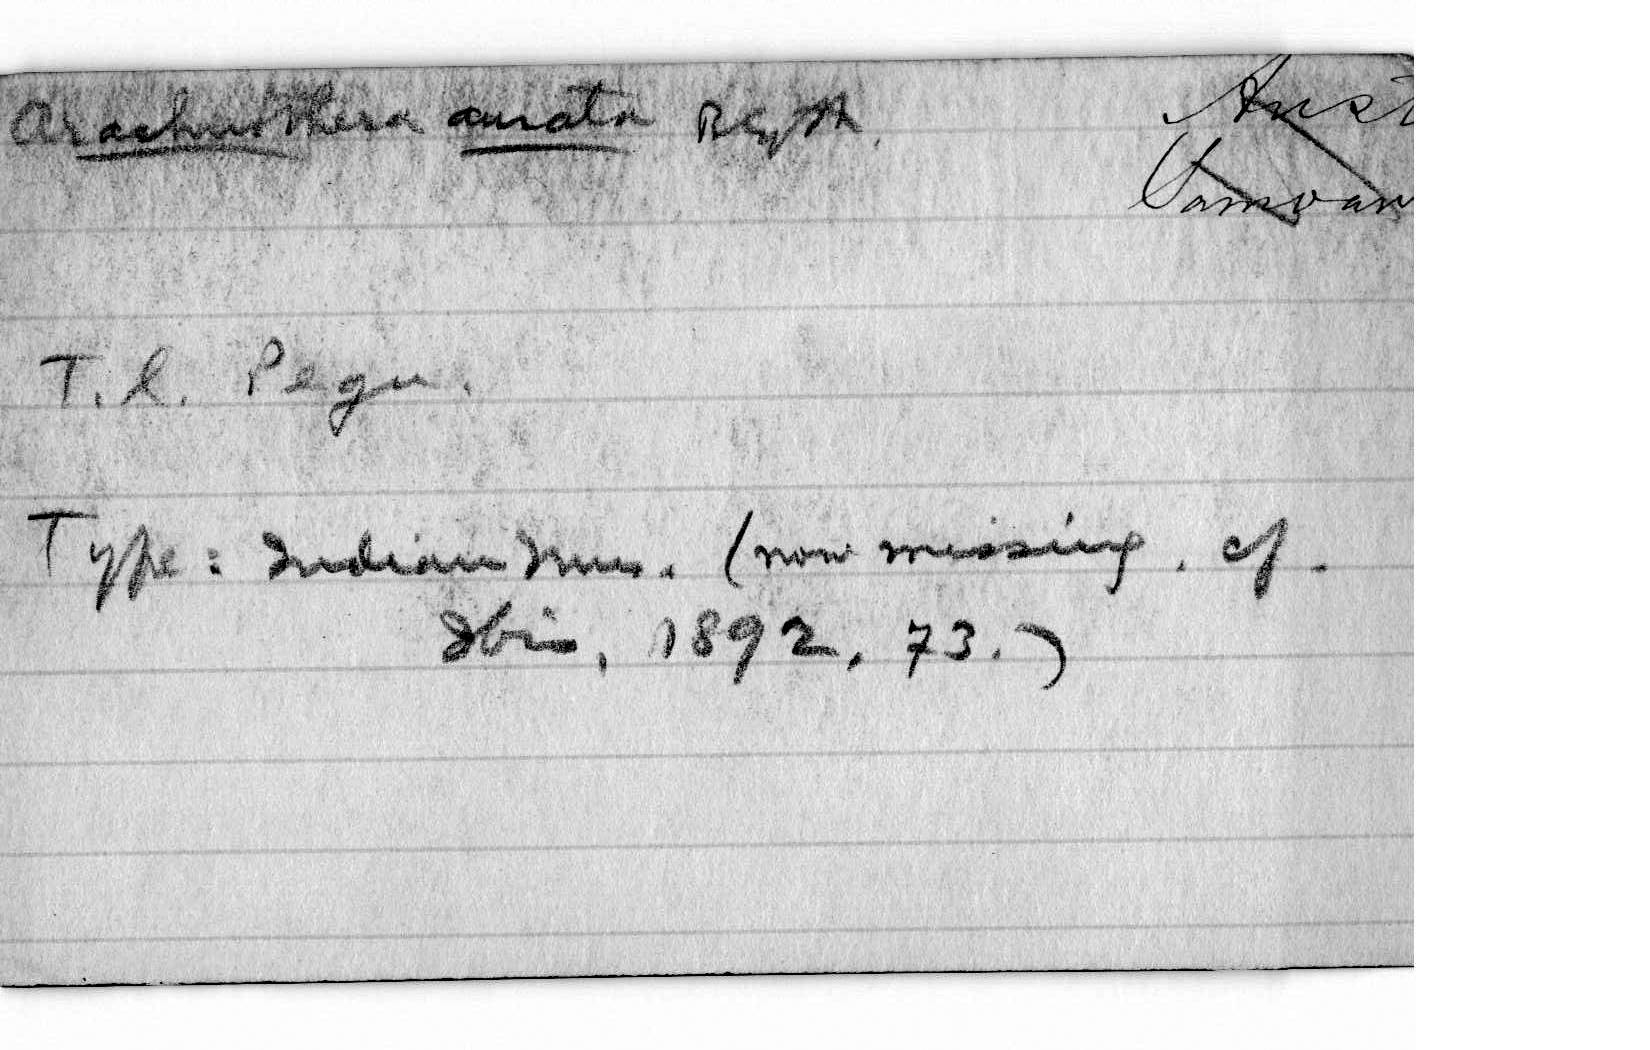 Arachnothera aurata Blyth.
T.l. Pegu.
Type: Indian Mus. (now missing. cf.
Ibis, 1892, 73.)